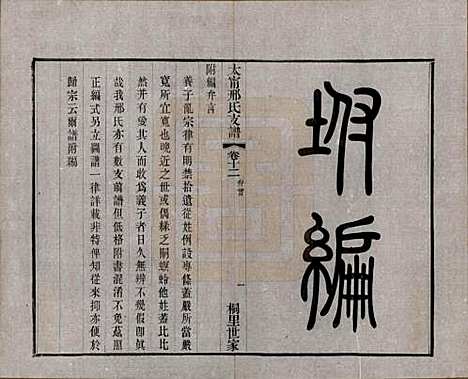 坿編
太甯邢氏支譜 卷十二 弁言 一 桐里世家
附編弁言
義子亂宗律有明禁拾遺從姓例設專條蓋嚴所當嚴
寬所宜寬也晚近之世或偶絲之嗣螟蛉他姓蓋比比
然幷有義而收爲義子者日久無辨不幾假卽眞
哉我邢氏亦有數支前譜但低格附書混淆不免茲照
正編式另立圖譜一律詳載非特俾知從來抑亦便于
歸宗云爾譜附編